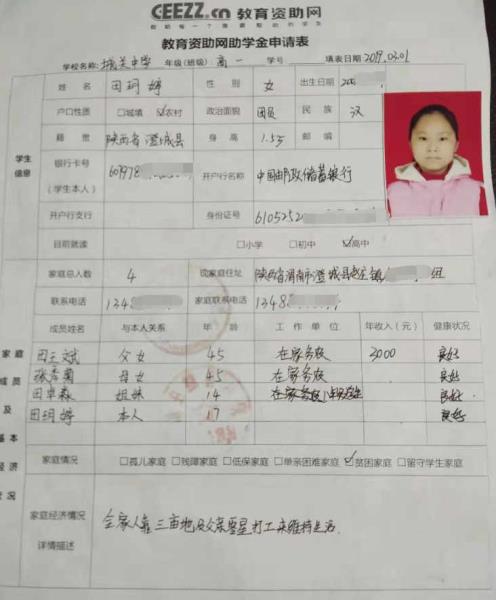 CEEZZ.cn 教育资助网
教育资助网助学金申请表
学校名称: 城关中学 年级(班级) 高一 学号 填表日期 2019.03.01
学生信息
姓名 田玥婷 性别 女 出生日期 200
户口性质 □城镇 ☑农村 政治面貌 团员 民族 汉
籍贯 陕西省澄城县 身高 1.55 邮编
银行卡号 (学生本人) 60978 开户行名称 中国邮政储蓄银行
开户行支行 身份证号 6105252
目前就读 □小学 □初中 ☑高中
家庭总人数 4 现家庭住址 陕西省渭南市澄城县 镇 组
联系电话 1348 家庭联系电话 1348
家庭成员及基本经济状况
成员姓名 与本人关系 年龄 工作单位 年收入(元) 健康状况
田 斌 父女 45 在家务农 3000 良好
张 菊 母女 45 在家务农 良好
田卓森 姐妹 14 良好
田玥婷 本人 17 良好
家庭情况 □孤儿家庭 □残障家庭 □低保家庭 □单亲困难家庭 ☑贫困家庭 □留守学生家庭
家庭经济情况
详情描述
全家人靠三亩地及父亲零星打工来维持生活.